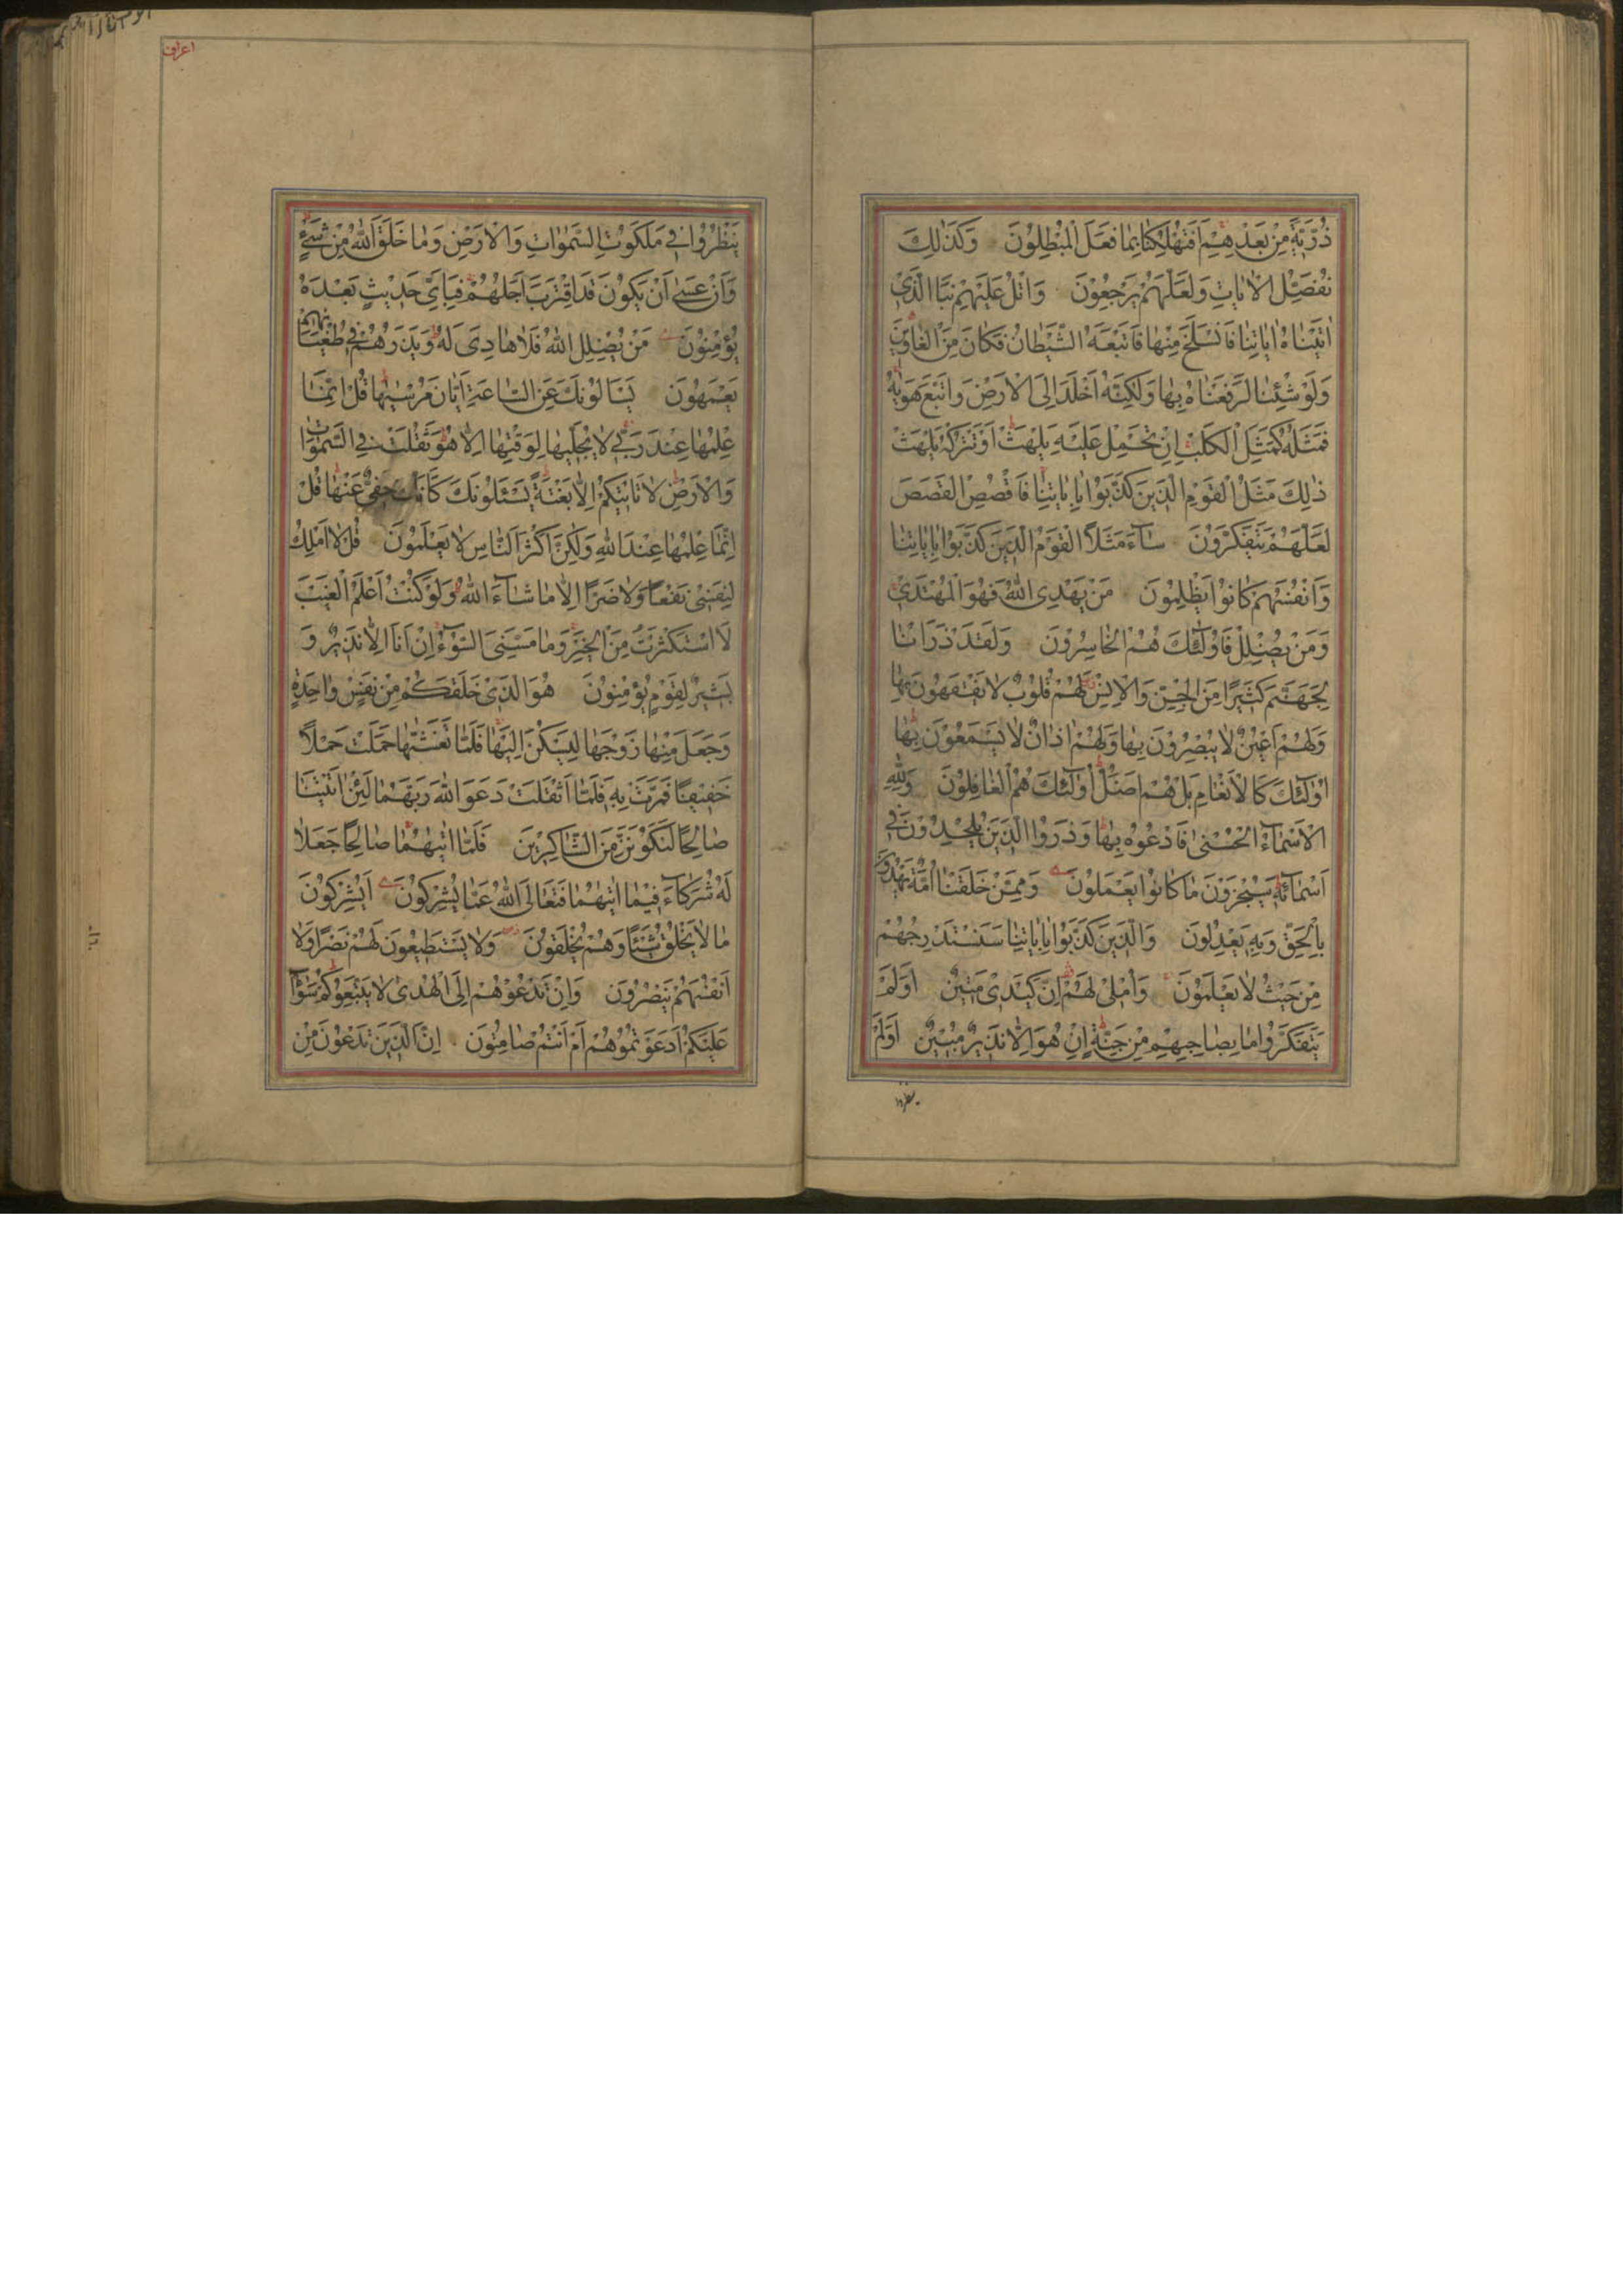 ذُرِّيَّةً مِنْ بَعْدِهِمْ اَفَتُهْلِكُنَا بِمَا فَعَلَ الْمُبْطِلُونَ وَكَذٰلِكَ
نُفَصِّلُ الْاٰيَاتِ وَلَعَلَّهُمْ يَرْجِعُونَ وَاتْلُ عَلَيْهِمْ نَبَأَ الَّذِى
اٰتَيْنَاهُ اٰيَاتِنَا فَانْسَلَخَ مِنْهَا فَاَتْبَعَهُ الشَّيْطَانُ فَكَانَ مِنَ الْغَاوِينَ
وَلَوْ شِئْنَا لَرَفَعْنَاهُ بِهَا وَلٰكِنَّهُ اَخْلَدَ اِلَى الْاَرْضِ وَاتَّبَعَ هَوٰيهُ
فَمَثَلُهُ كَمَثَلِ الْكَلْبِ اِنْ تَحْمِلْ عَلَيْهِ يَلْهَثْ اَوْ تَتْرُكْهُ يَلْهَثْ
ذٰلِكَ مَثَلُ الْقَوْمِ الَّذِينَ كَذَّبُوا بِاٰيَاتِنَا فَاقْصُصِ الْقَصَصَ
لَعَلَّهُمْ يَتَفَكَّرُونَ سَاۤءَ مَثَلًا الْقَوْمُ الَّذِينَ كَذَّبُوا بِاٰيَاتِنَا
وَاَنْفُسَهُمْ كَانُوا يَظْلِمُونَ مَنْ يَهْدِى اللّٰهُ فَهُوَ الْمُهْتَدِى
وَمَنْ يُضْلِلْ فَاُولٰۤئِكَ هُمُ الْخَاسِرُونَ وَلَقَدْ ذَرَأْنَا
لِجَهَنَّمَ كَثِيرًا مِنَ الْجِنِّ وَالْاِنْسِ لَهُمْ قُلُوبٌ لَا يَفْقَهُونَ بِهَا
وَلَهُمْ اَعْيُنٌ لَا يُبْصِرُونَ بِهَا وَلَهُمْ اٰذَانٌ لَا يَسْمَعُونَ بِهَا
اُولٰۤئِكَ كَالْاَنْعَامِ بَلْ هُمْ اَضَلُّ اُولٰۤئِكَ هُمُ الْغَافِلُونَ وَلِلّٰهِ
الْاَسْمَاۤءُ الْحُسْنٰى فَادْعُوهُ بِهَا وَذَرُوا الَّذِينَ يُلْحِدُونَ فِى
اَسْمَاۤئِهِ سَيُجْزَوْنَ مَا كَانُوا يَعْمَلُونَ وَمِمَّنْ خَلَقْنَا اُمَّةٌ يَهْدُونَ
بِالْحَقِّ وَبِهِ يَعْدِلُونَ وَالَّذِينَ كَذَّبُوا بِاٰيَاتِنَا سَنَسْتَدْرِجُهُمْ
مِنْ حَيْثُ لَا يَعْلَمُونَ وَاُمْلِى لَهُمْ اِنَّ كَيْدِى مَتِينٌ اَوَلَمْ
يَتَفَكَّرُوا مَا بِصَاحِبِهِمْ مِنْ جِنَّةٍ اِنْ هُوَ اِلَّا نَذِيرٌ مُبِينٌ اَوَلَمْ
ينظروا
اعراف
يَنْظُرُوا فِى مَلَكُوتِ السَّمٰوَاتِ وَالْاَرْضِ وَمَا خَلَقَ اللّٰهُ مِنْ شَىْءٍ
وَاَنْ عَسٰى اَنْ يَكُونَ قَدِ اقْتَرَبَ اَجَلُهُمْ فَبِاَىِّ حَدِيثٍ بَعْدَهُ
يُؤْمِنُونَ مَنْ يُضْلِلِ اللّٰهُ فَلَا هَادِىَ لَهُ وَيَذَرُهُمْ فِى طُغْيَانِهِمْ
يَعْمَهُونَ يَسْاَلُونَكَ عَنِ السَّاعَةِ اَيَّانَ مُرْسٰيهَا قُلْ اِنَّمَا
عِلْمُهَا عِنْدَ رَبِّى لَا يُجَلِّيهَا لِوَقْتِهَا اِلَّا هُوَ ثَقُلَتْ فِى السَّمٰوَاتِ
وَالْاَرْضِ لَا تَأْتِيكُمْ اِلَّا بَغْتَةً يَسْئَلُونَكَ كَاَنَّكَ حَفِىٌّ عَنْهَا قُلْ
اِنَّمَا عِلْمُهَا عِنْدَ اللّٰهِ وَلٰكِنَّ اَكْثَرَ النَّاسِ لَا يَعْلَمُونَ قُلْ لَا اَمْلِكُ
لِنَفْسِى نَفْعًا وَلَا ضَرًّا اِلَّا مَا شَاۤءَ اللّٰهُ وَلَوْ كُنْتُ اَعْلَمُ الْغَيْبَ
لَاسْتَكْثَرْتُ مِنَ الْخَيْرِ وَمَا مَسَّنِىَ السُّوۤءُ اِنْ اَنَا اِلَّا نَذِيرٌ وَ
بَشِيرٌ لِقَوْمٍ يُؤْمِنُونَ هُوَ الَّذِى خَلَقَكُمْ مِنْ نَفْسٍ وَاحِدَةٍ
وَجَعَلَ مِنْهَا زَوْجَهَا لِيَسْكُنَ اِلَيْهَا فَلَمَّا تَغَشّٰيهَا حَمَلَتْ حَمْلًا
خَفِيفًا فَمَرَّتْ بِهِ فَلَمَّا اَثْقَلَتْ دَعَوَا اللّٰهَ رَبَّهُمَا لَئِنْ اٰتَيْتَنَا
صَالِحًا لَنَكُونَنَّ مِنَ الشَّاكِرِينَ فَلَمَّا اٰتٰيهُمَا صَالِحًا جَعَلَا
لَهُ شُرَكَاۤءَ فِيمَا اٰتٰيهُمَا فَتَعَالَى اللّٰهُ عَمَّا يُشْرِكُونَ اَيُشْرِكُونَ
مَا لَا يَخْلُقُ شَيْئًا وَهُمْ يُخْلَقُونَ وَلَا يَسْتَطِيعُونَ لَهُمْ نَصْرًا وَلَا
اَنْفُسَهُمْ يَنْصُرُونَ وَاِنْ تَدْعُوهُمْ اِلَى الْهُدٰى لَا يَتَّبِعُوكُمْ سَوَاۤءٌ
عَلَيْكُمْ اَدَعَوْتُمُوهُمْ اَمْ اَنْتُمْ صَامِتُونَ اِنَّ الَّذِينَ تَدْعُونَ مِنْ